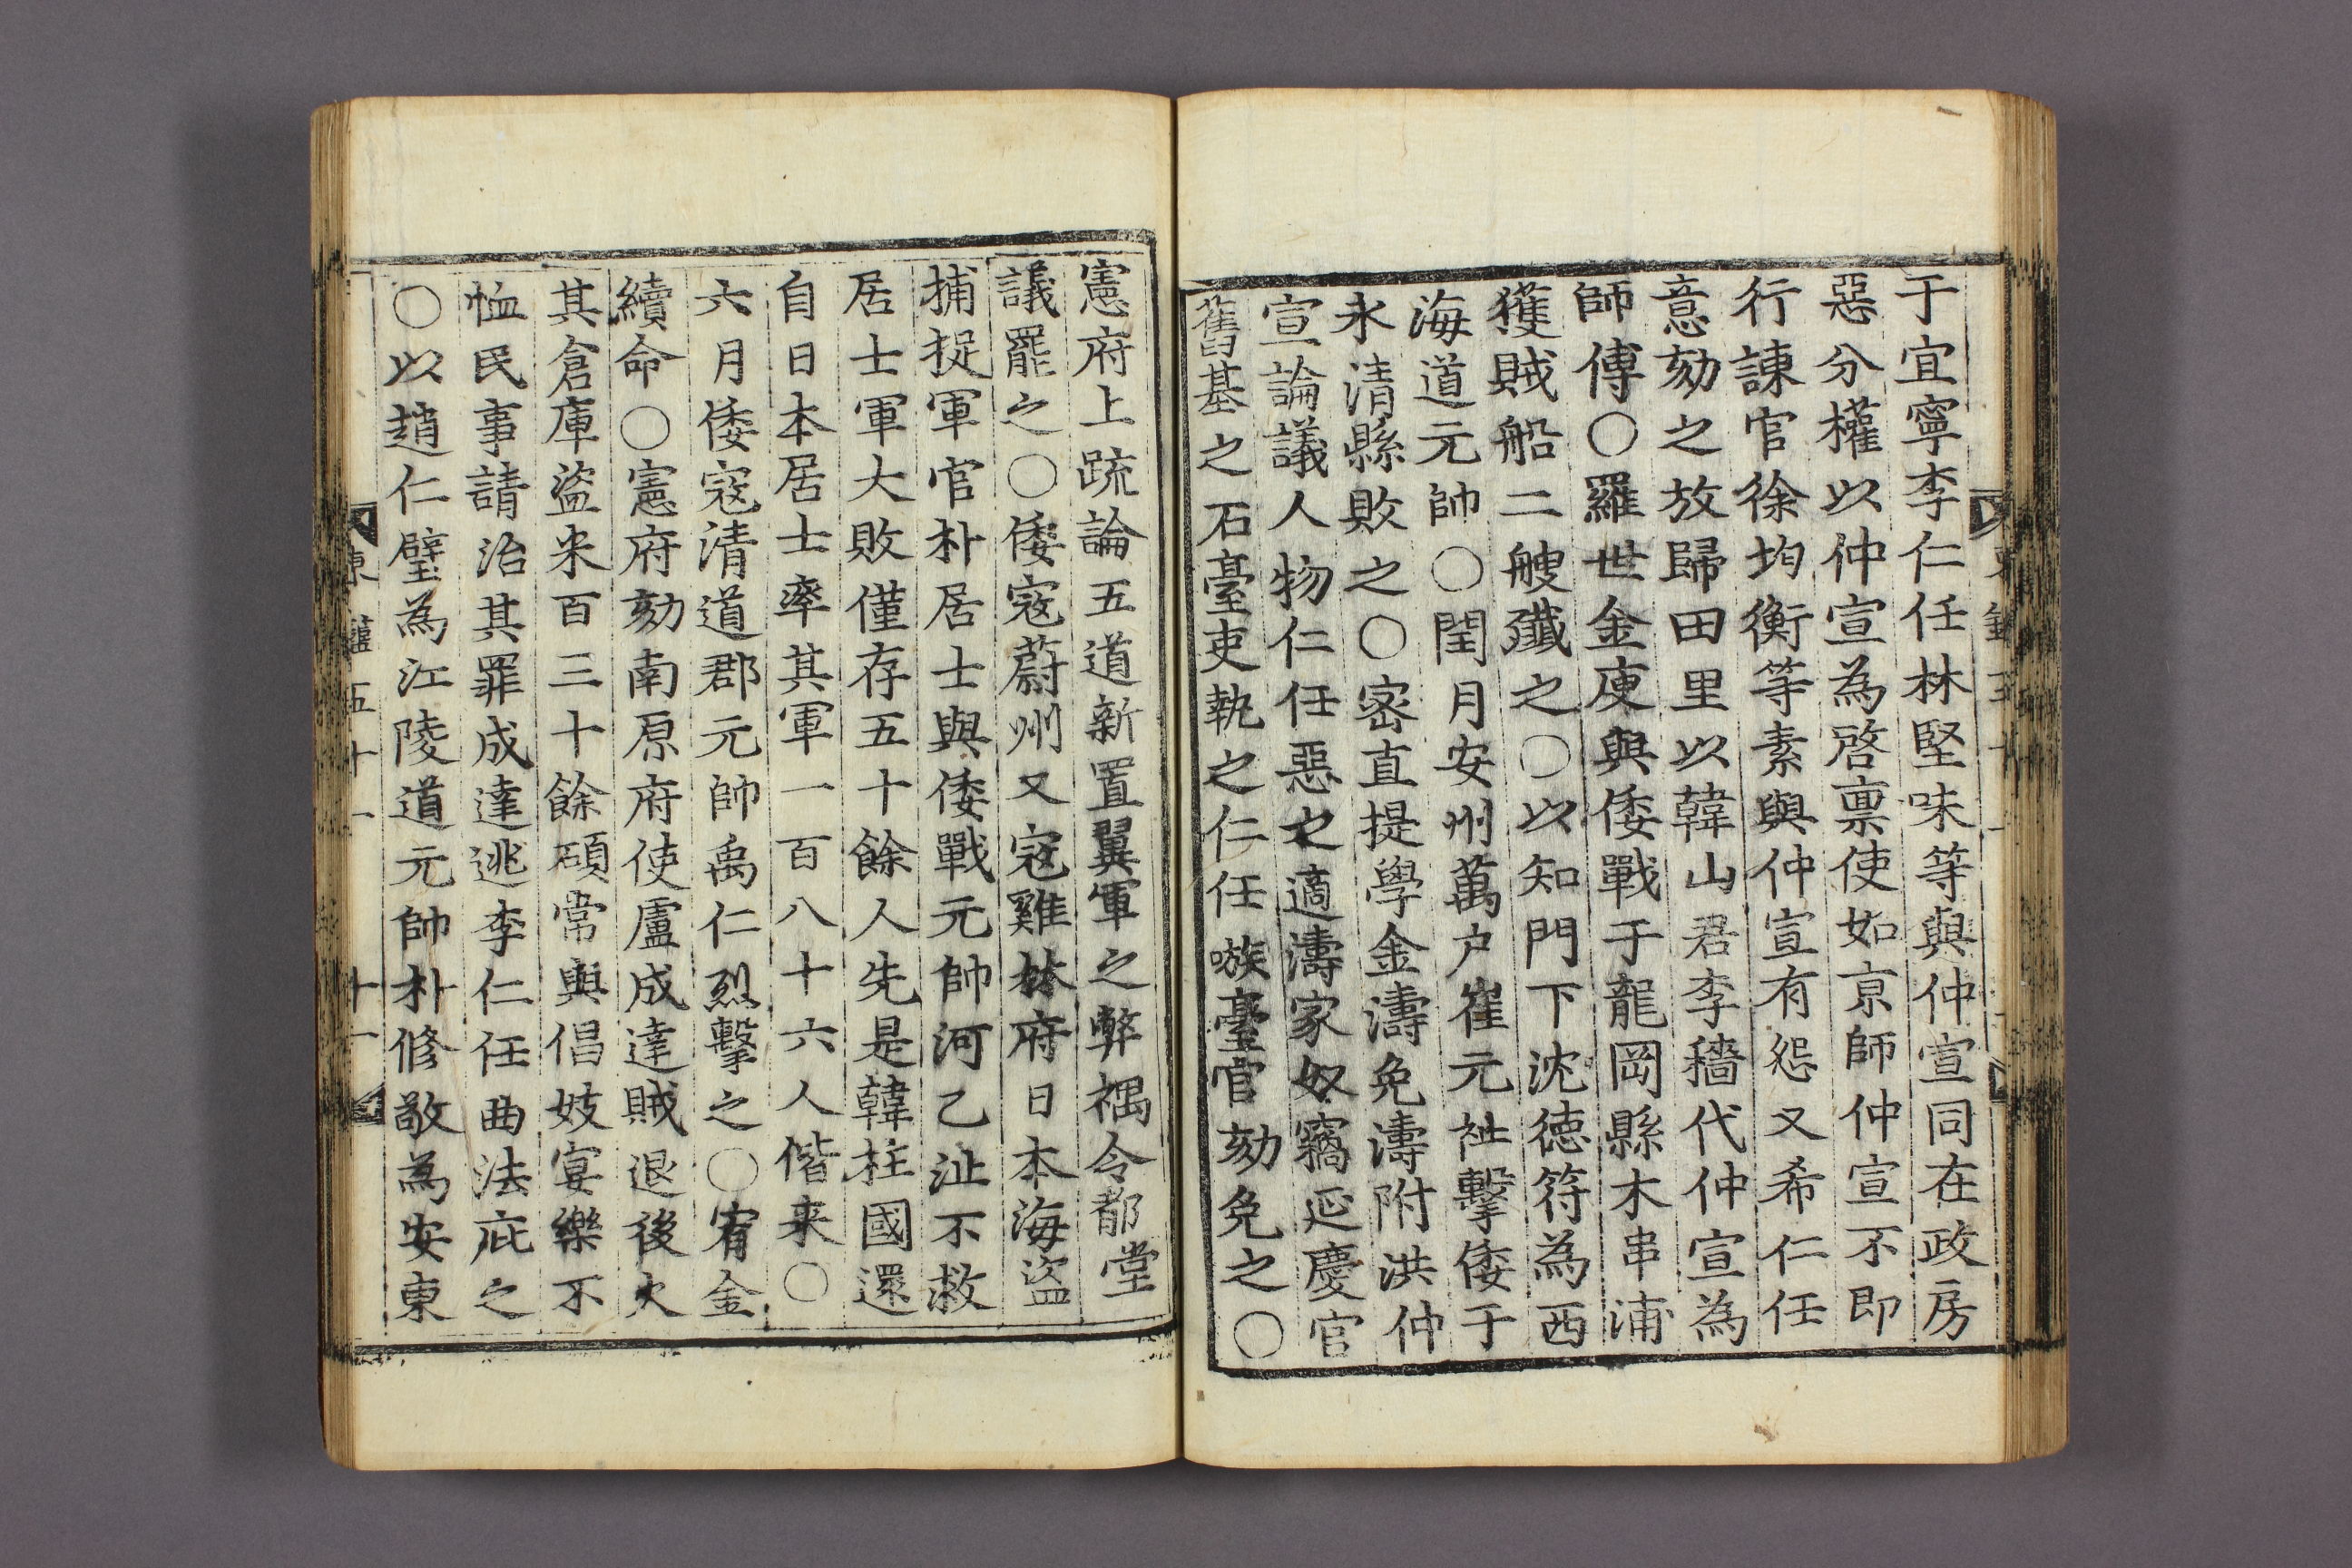 于宜寧李仁任林堅味等與仲宣同在政房
惡分權以仲宣為啓稟使如京師仲宣不即
行諫官徐均衡等素與仲宣有怨又希仁任
意劾之放歸田里以韓山君李穡代仲宣為
師傅○羅世金庾與倭戰于龍岡縣木串浦
獲賊船二艘殲之○以知門下沈德符為西
海道元帥○閏月安州萬户崔元祉擊倭于
永清縣敗之○密直提學金濤免濤附洪仲
宣論議人物仁任惡之適濤家奴竊延慶宮
舊基之石臺吏執之仁任嗾臺官劾免之○
憲府上疏論五道新置翼軍之弊禑令都堂
議罷之○倭寇蔚州又寇雞林府日本海盜
捕捉軍官朴居士與倭戰元帥河乙沚不救
居士軍大敗僅存五十餘人先是韓柱國還
自日本居士率其軍一百八十六人偕来○
六月倭寇清道郡元帥禹仁烈擊之○宥金
續命○憲府劾南原府使盧成達賊退後火
其倉庫盜米百三十餘碩常與倡妓宴樂不
恤民事請治其罪成達逃李仁任曲法庇之
○以趙仁璧為江陵道元帥朴修敬為安東
五十一
十一